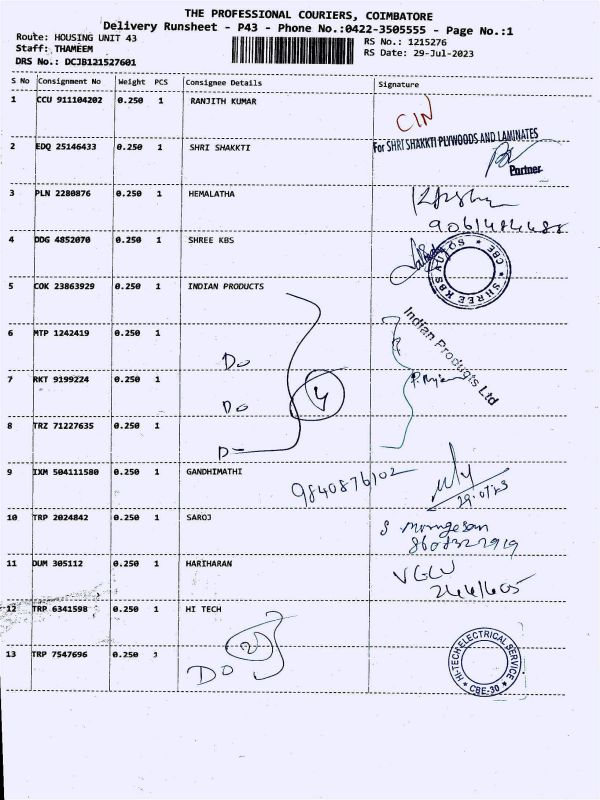 THE PROFESSIONAL COURIERS, COIMBATORE
Delivery Runsheet - P43 - Phone No.:0422-3505555 - Page No.:1
Route: HOUSING UNIT 43
RS No.: 1215276
Staff: THAMEEM
RS Date: 29-Jul-2023
DRS No.: DCJB121527601
S No Consignment No Weight PCS Consignee Details Signature
1 CCU 911104202 0.250 1 RANJITH KUMAR
CIN
For SHRI SHAKKTI PLYWOODS AND LAMINATES
2 EDQ 25146433 0.250 1 SHRI SHAKKTI
Partner
3 PLN 2280876 0.250 1 HEMALATHA
4 DDG 4852070 0.250 1 SHREE KBS
SHREE KBS AUTOS * CBE *
5 COK 23863929 0.250 1 INDIAN PRODUCTS
Indian Products Ltd
6 MTP 1242419 0.250 1
Do
7 RKT 9199224 0.250 1
4
Do
8 TRZ 71227635 0.250 1
D
9 IXM 504111580 0.250 1 GANDHIMATHI
9840876102
10 TRP 2024842 0.250 1 SAROJ
11 DUM 305112 0.250 1 HARIHARAN
12 TRP 6341598 0.250 1 HI TECH
2
13 TRP 7547696 0.250 1
Do
HI-TECH ELECTRICAL SERVICE
* CBE-30 *